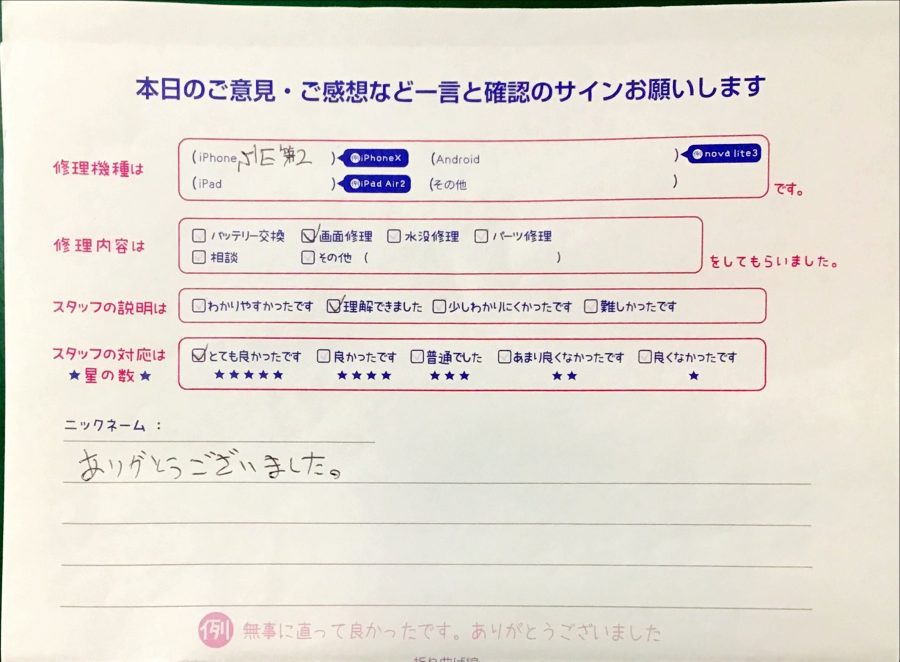 本日のご意見・ご感想など一言と確認のサインお願いします
修理機種は
(iPhone SE 第2 ) 例iPhoneX (Android ) 例nova lite3
(iPad ) 例iPad Air2 (その他 ) です。
修理内容は
バッテリー交換 画面修理 水没修理 パーツ修理
相談 その他 ( ) をしてもらいました。
スタッフの説明は わかりやすかったです 理解できました 少しわかりにくかったです 難しかったです
スタッフの対応は とても良かったです 良かったです 普通でした あまり良くなかったです 良くなかったです
★星の数★ ★★★★★ ★★★★ ★★★ ★★ ★
ニックネーム :
ありがとうございました。
例 無事に直って良かったです。ありがとうございました